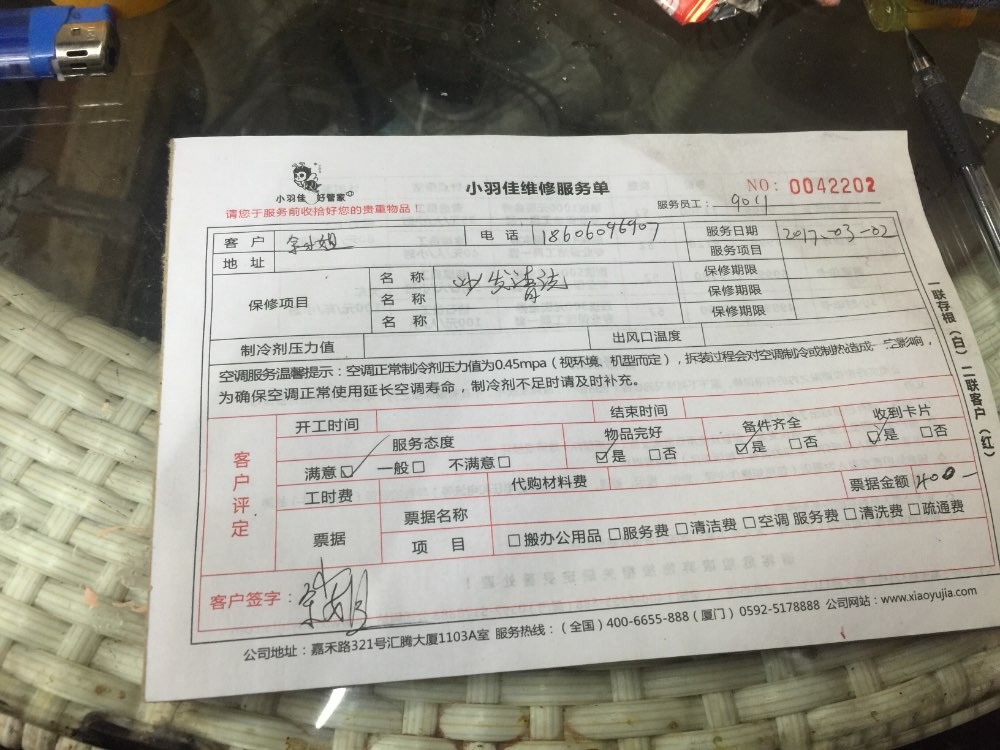 小羽佳 好管家
小羽佳维修服务单
NO: 0042202
请您于服务前收拾好您的贵重物品！
服务员工： 9011
客 户
电 话 18606096907
服务日期 2017-03-02
地 址
服务项目
保修项目
名 称 沙发清洁
保修期限
名 称
保修期限
名 称
保修期限
制冷剂压力值
出风口温度
空调服务温馨提示：空调正常制冷剂压力值为0.45mpa（视环境、机型而定），拆装过程会对空调制冷或制热造成一定影响，
为确保空调正常使用延长空调寿命，制冷剂不足时请及时补充。
客户评定
开工时间
结束时间
服务态度
物品完好
备件齐全
收到卡片
满意☑ 一般□ 不满意□
☑是 □否
☑是 □否
☑是 □否
工时费
代购材料费
票据金额 400-
票据
票据名称
项 目
□搬办公用品 □服务费 □清洁费 □空调 服务费 □清洗费 □疏通费
客户签字：
公司地址：嘉禾路321号汇腾大厦1103A室 服务热线：（全国）400-6655-888（厦门）0592-5178888 公司网站：www.xiaoyujia.com
一联存根（白）二联客户（红）